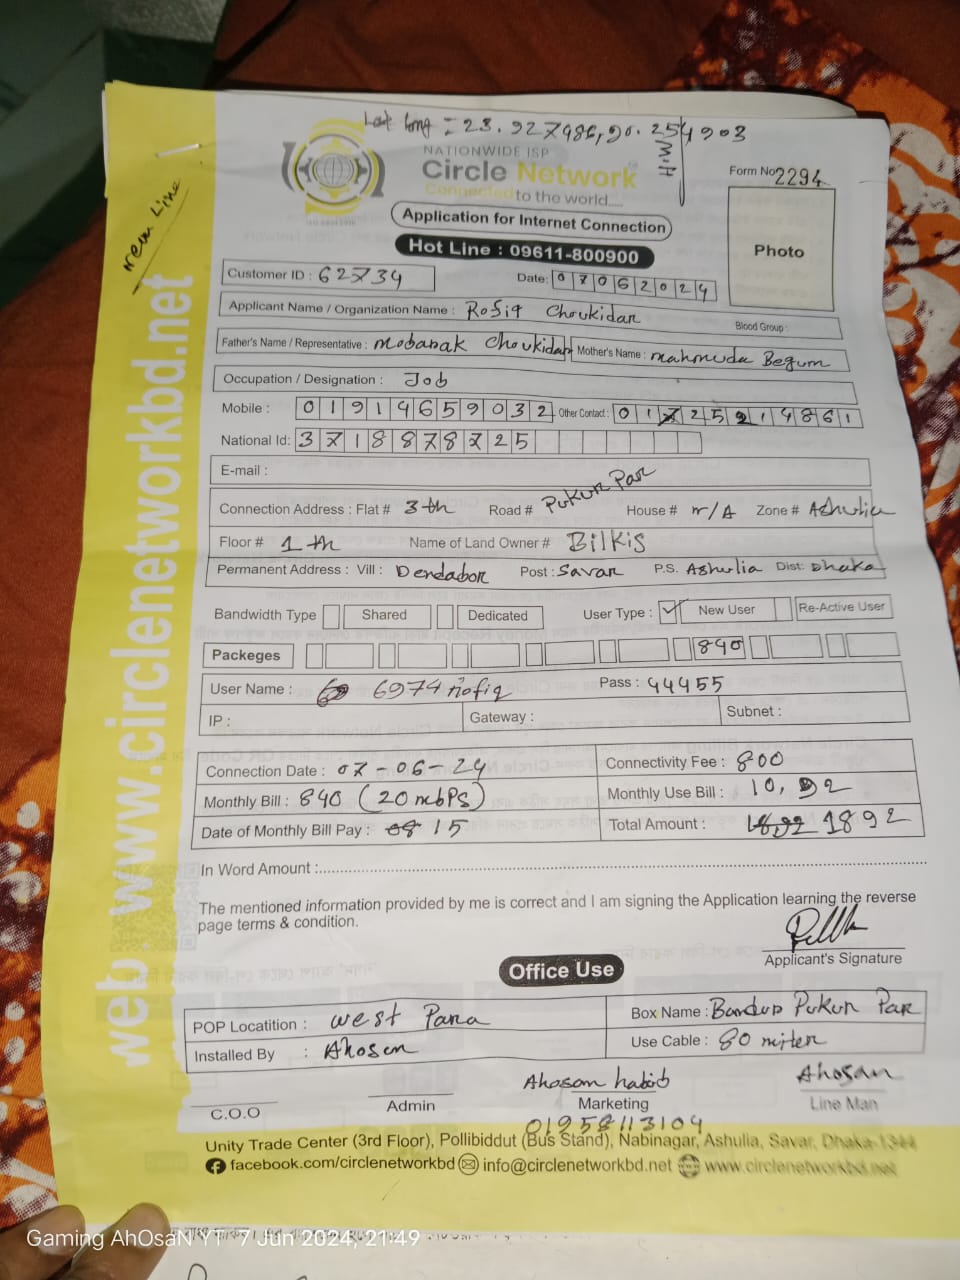 Lat long = 23.927986, 90.254903
NATIONWIDE ISP
Circle Network
Connected to the world....
Form No 2294
New Line
Application for Internet Connection
Hot Line : 09611-800900
Photo
Customer ID : 62734
Date: 07062024
Applicant Name / Organization Name : Rofiq Choukidar
Blood Group :
Father's Name / Representative : Mobarak Choukidar Mother's Name : Mahmuda Begum
Occupation / Designation : Job
Mobile : 01914659032 Other Contact : 01725214861
National Id: 3718878725
E-mail :
Connection Address : Flat # 3th Road # Pukur Par House # n/A Zone # Ashulia
Floor # 1th Name of Land Owner # Bilkis
Permanent Address : Vill : Dendabor Post : Savar P.S. Ashulia Dist: Dhaka
Bandwidth Type Shared Dedicated User Type : ✓ New User Re-Active User
Packeges 840
User Name : 6974 rofiq Pass : 44455
IP : Gateway : Subnet :
Connection Date : 07-06-24 Connectivity Fee : 800
Monthly Bill : 840 (20 mbps) Monthly Use Bill : 10,92
Date of Monthly Bill Pay : 15 Total Amount : 1892
In Word Amount :
The mentioned information provided by me is correct and I am signing the Application learning the reverse
page terms & condition.
Applicant's Signature
Office Use
POP Locatition : West Para Box Name : Bandup Pukur Par
Installed By : Ahosan Use Cable : 80 miter
Ahosan habib Ahosan
C.O.O Admin Marketing Line Man
01958113104
Unity Trade Center (3rd Floor), Pollibiddut (Bus Stand), Nabinagar, Ashulia, Savar, Dhaka-1344
facebook.com/circlenetworkbd info@circlenetworkbd.net www.circlenetworkbd.net
web : www.circlenetworkbd.net
Gaming AhOsaN YT 7 Jun 2024, 21:49